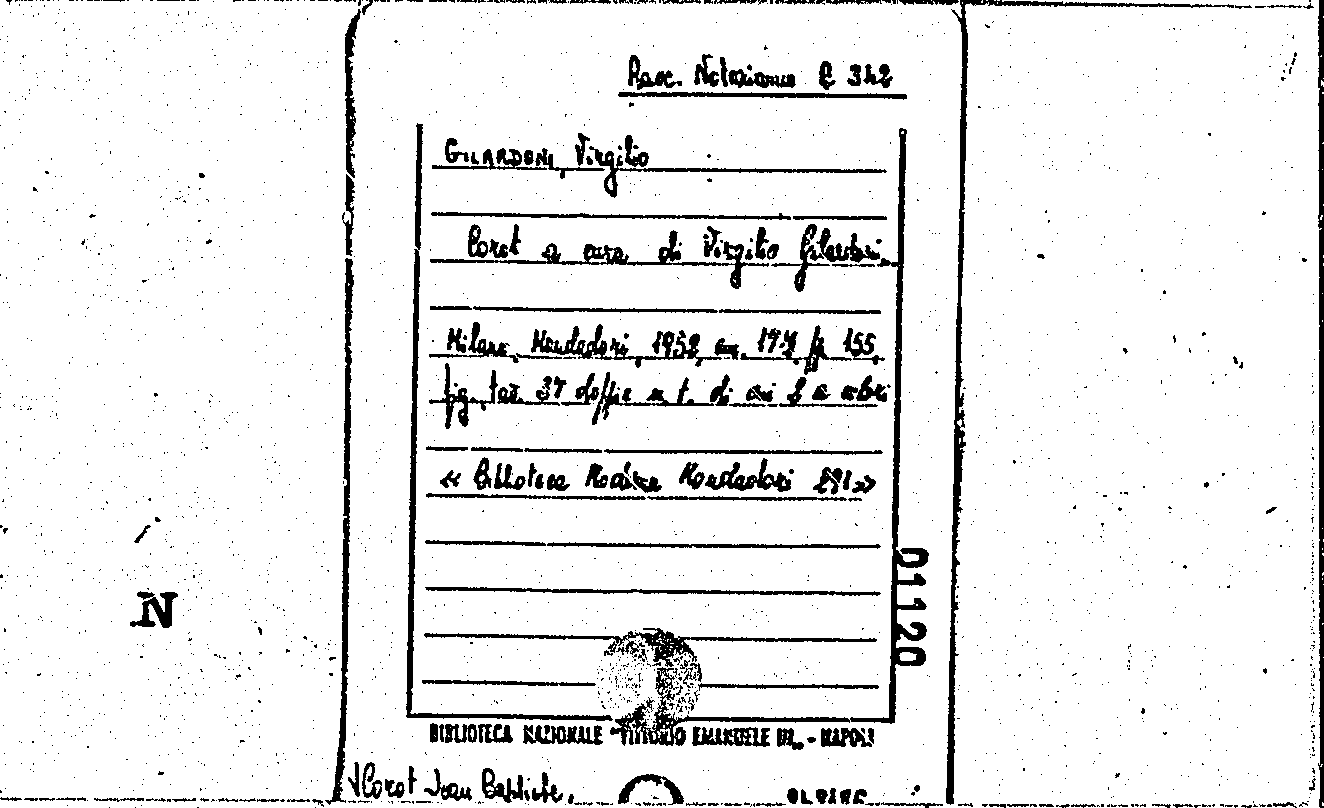 Racc. Notarianni C 342
GILARDONI, Virgilio
Corot a cura di Virgilio Gilardoni.
Milano, Mondadori, 1952, in 155,
fig., tav. 37 doppie n. t. di cui 2 a colori
« Biblioteca Moderna Mondadori 291 »
01120
N
BIBLIOTECA NAZIONALE "VITTORIO EMANUELE III" - NAPOLI
Corot Jean Baptiste,